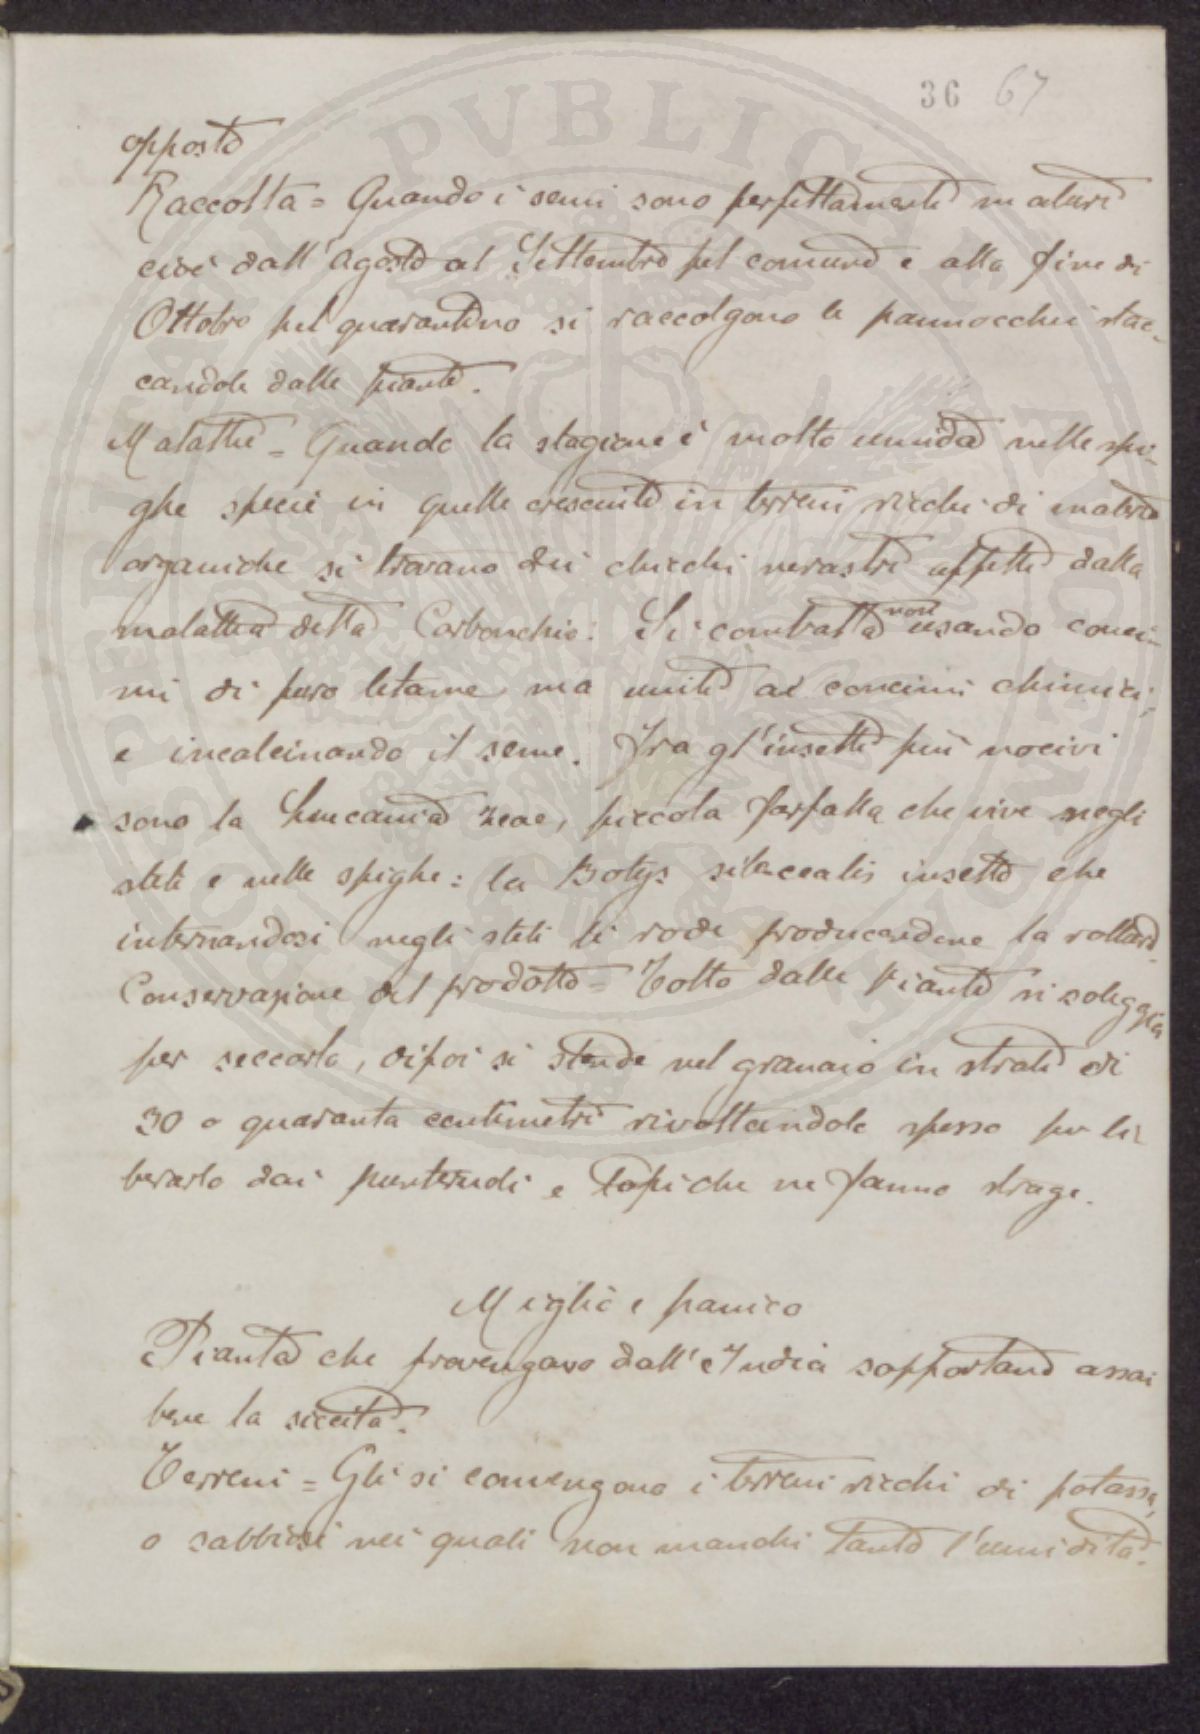 36 67
opposto
Raccolta = Quando i semi sono perfettamente maturi
cioè dall'Agosto al Settembre pel comune e alla fine di
Ottobre pel quarantino si raccolgono le pannocchie stac-
candole dalle piante.
Malattie = Quando la stagione è molto umida nelle spi-
ghe specie in quelle cresciute in terreni ricchi di materie
organiche si trovano dei chicchi nerastri affetti dalla
malattia detta Carbonchio. Si combatta non usando conci-
mi di puro letame ma uniti ai concimi chimici,
e incalcinando il seme. Fra gl'insetti più nocivi
sono la Leucania zeae, piccola farfalla che vive negli
steli e nelle spighe: la Botys silacealis insetto che
internandosi negli steli li rode producendone la rottura.
Conservazione del prodotto = Tolto dalle piante si soleggia
per seccarlo, dipoi si stende nel granaio in strati di
30 o quaranta centimetri rivoltandolo spesso per li-
berarlo dai punteruoli e topi che ne fanno strage.
Miglio e panico
Pianta che provengono dall'India sopportano assai
bene la siccità.
Terreni = Gli si convengono i terreni ricchi di potassa,
o sabbiosi nei quali non manchi tanto l'umidità.